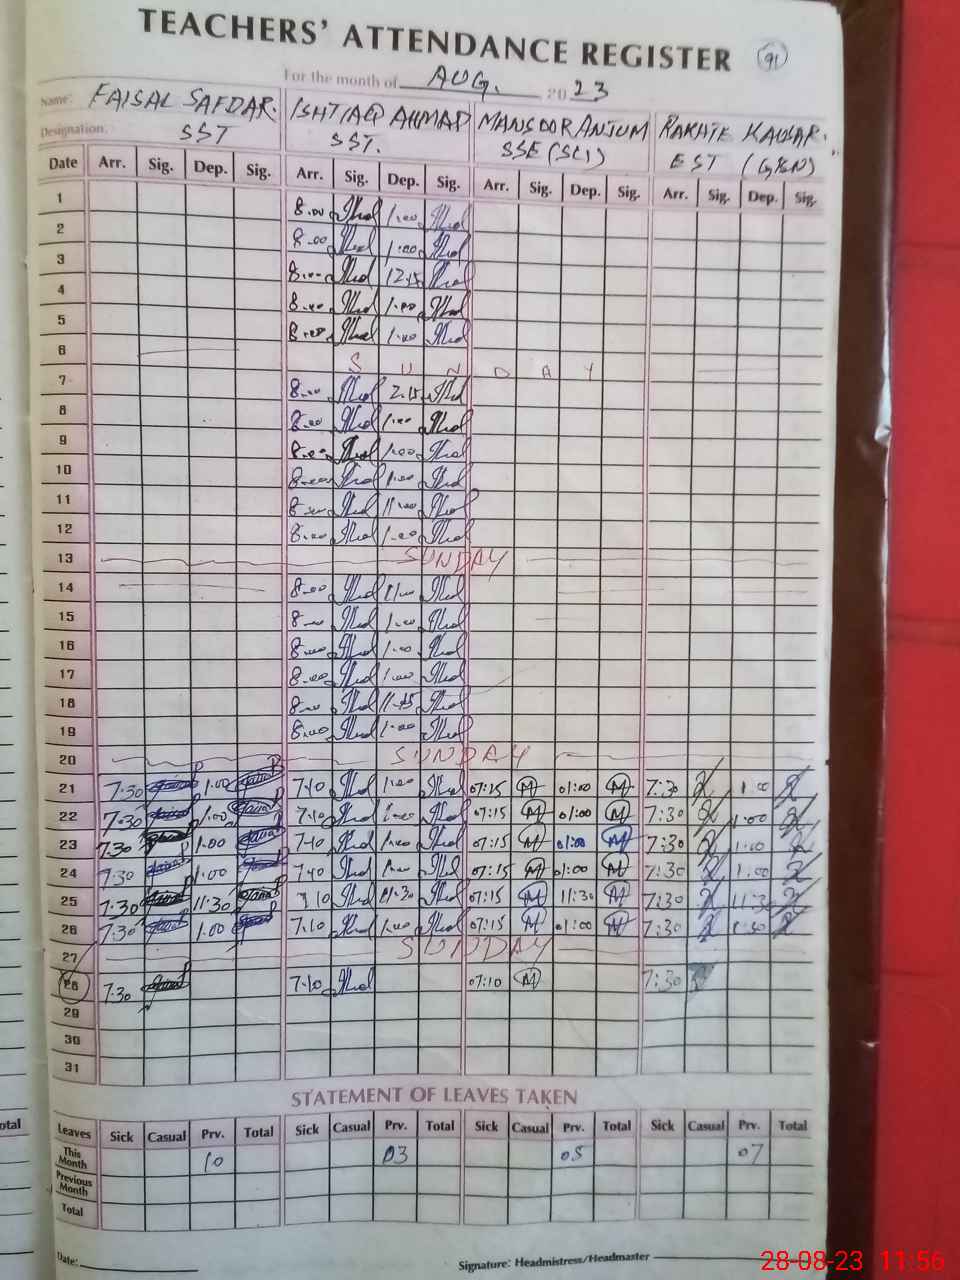 TEACHERS' ATTENDANCE REGISTER 91
For the month of AUG. 2023
Name: FAISAL SAFDAR. ISHTIAQ AHMAD MANSOOR ANJUM KAUSAR.
Designation: SST SST. SSE (SCI) EST
Date Arr. Sig. Dep. Sig. Arr. Sig. Dep. Sig. Arr. Sig. Dep. Sig. Arr. Sig. Dep. Sig.
1 8.00 1.00
2 8.00 1.00
3 8.00 12.15
4 8.00 1.00
5 8.00 1.00
6 S U N D A Y
7 8.00 2.15
8 8.00 1.00
9 8.00 1.00
10 8.00 1.00
11 8.00 11.00
12 8.00 1.00
13 SUNDAY
14 8.00
15 8.00 1.00
16 8.00 1.00
17 8.00 1.00
18 8.00 11.45
19 8.00 1.00
20 SUNDAY
21 7.30 1.00 7.10 1.00 07:15 M 01:00 M 7:30 1:00
22 7.30 1.00 7.10 1.00 07:15 M 01:00 M 7:30 1:00
23 7.30 1.00 7.10 1.00 07:15 M 01:00 M 7:30 1:00
24 7.30 1.00 7.10 1.00 07:15 M 01:00 M 7:30 1:00
25 7.30 11.30 7.10 11.30 07:15 M 11:30 M 7:30 11:30
26 7.30 1.00 7.10 1.00 07:15 M 01:00 M 7:30
27 SUNDAY
28 7.30 7.10 07:10 M 7:30
29
30
31
STATEMENT OF LEAVES TAKEN
Leaves Sick Casual Prv. Total Sick Casual Prv. Total Sick Casual Prv. Total Sick Casual Prv. Total
This Month 10 03 05 07
Previous Month
Total
otal
Date: Signature: Headmistress/Headmaster
28-08-23 11:56